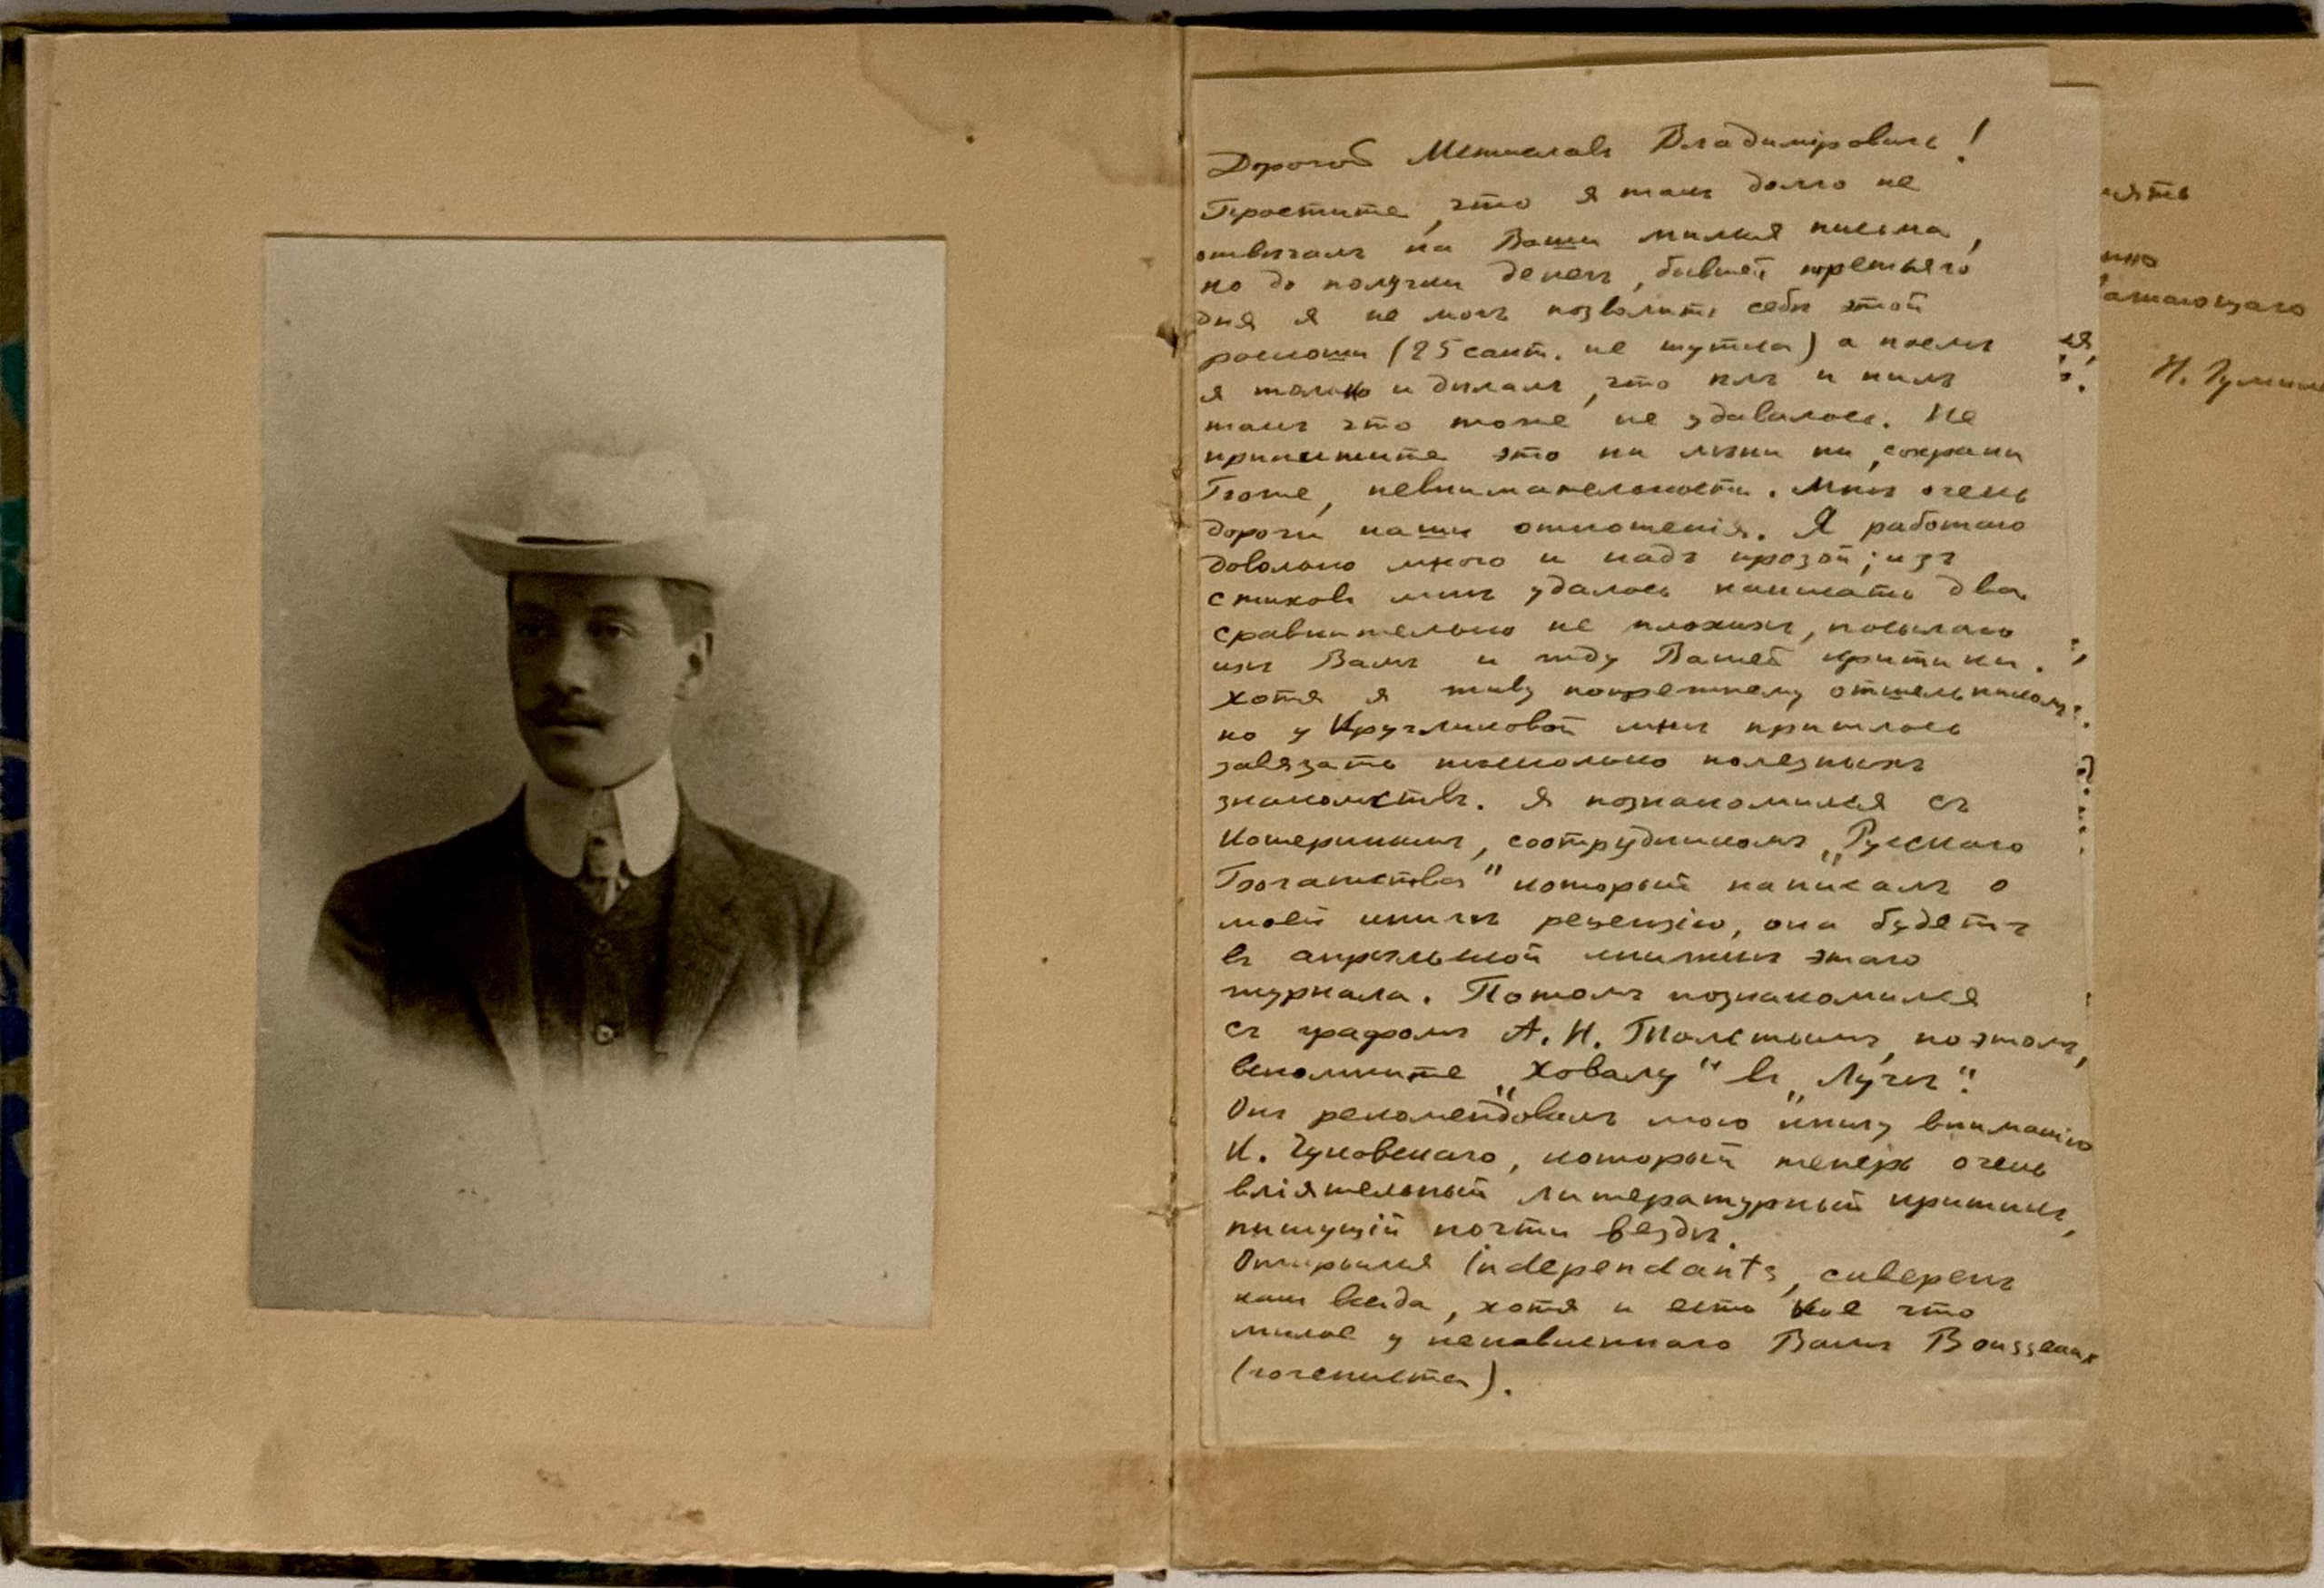 Дорогой Мстиславъ Владимiровичъ!
Простите, что я такъ долго не
отвѣчалъ на Ваши милыя письма,
но до получки денегъ, бывшей третьяго
дня я не могъ позволить себѣ этой
роскоши (25 сант. не шутка) а послѣ
я только и дѣлалъ, что ѣлъ и пилъ
такъ что тоже не удавалось. Не
припишите это ни лѣни ни, сохрани
Боже, невнимательности. Мнѣ очень
дороги наши отношенiя. Я работаю
довольно много и надъ прозой; изъ
стиховъ мнѣ удалось написать два
сравнительно не плохихъ, посылаю
ихъ Вамъ и жду Вашей критики.
Хотя я живу попрежнему отшельникомъ,
но у Кругликовой мнѣ пришлось
завязать нѣсколько полезныхъ
знакомствъ. Я познакомился съ
Кошеринымъ, сотрудникомъ „Русскаго
Богатства" который написалъ о
моей книгѣ рецензiю, она будетъ
въ апрѣльской книжкѣ этого
журнала. Потомъ познакомился
съ графомъ А. Н. Толстымъ, поэтомъ,
вспомните „Ховалу" въ „Лучѣ".
Онъ рекомендовалъ мою книгу вниманiю
К. Чуковскаго, который теперь очень
влiятельный литературный критикъ,
пишущiй почти вездѣ.
Открылся Independants, скверенъ
какъ всегда, хотя и есть кое что
милое у ненавистнаго Вамъ Rousseau
ять
нно
Н. Гумил